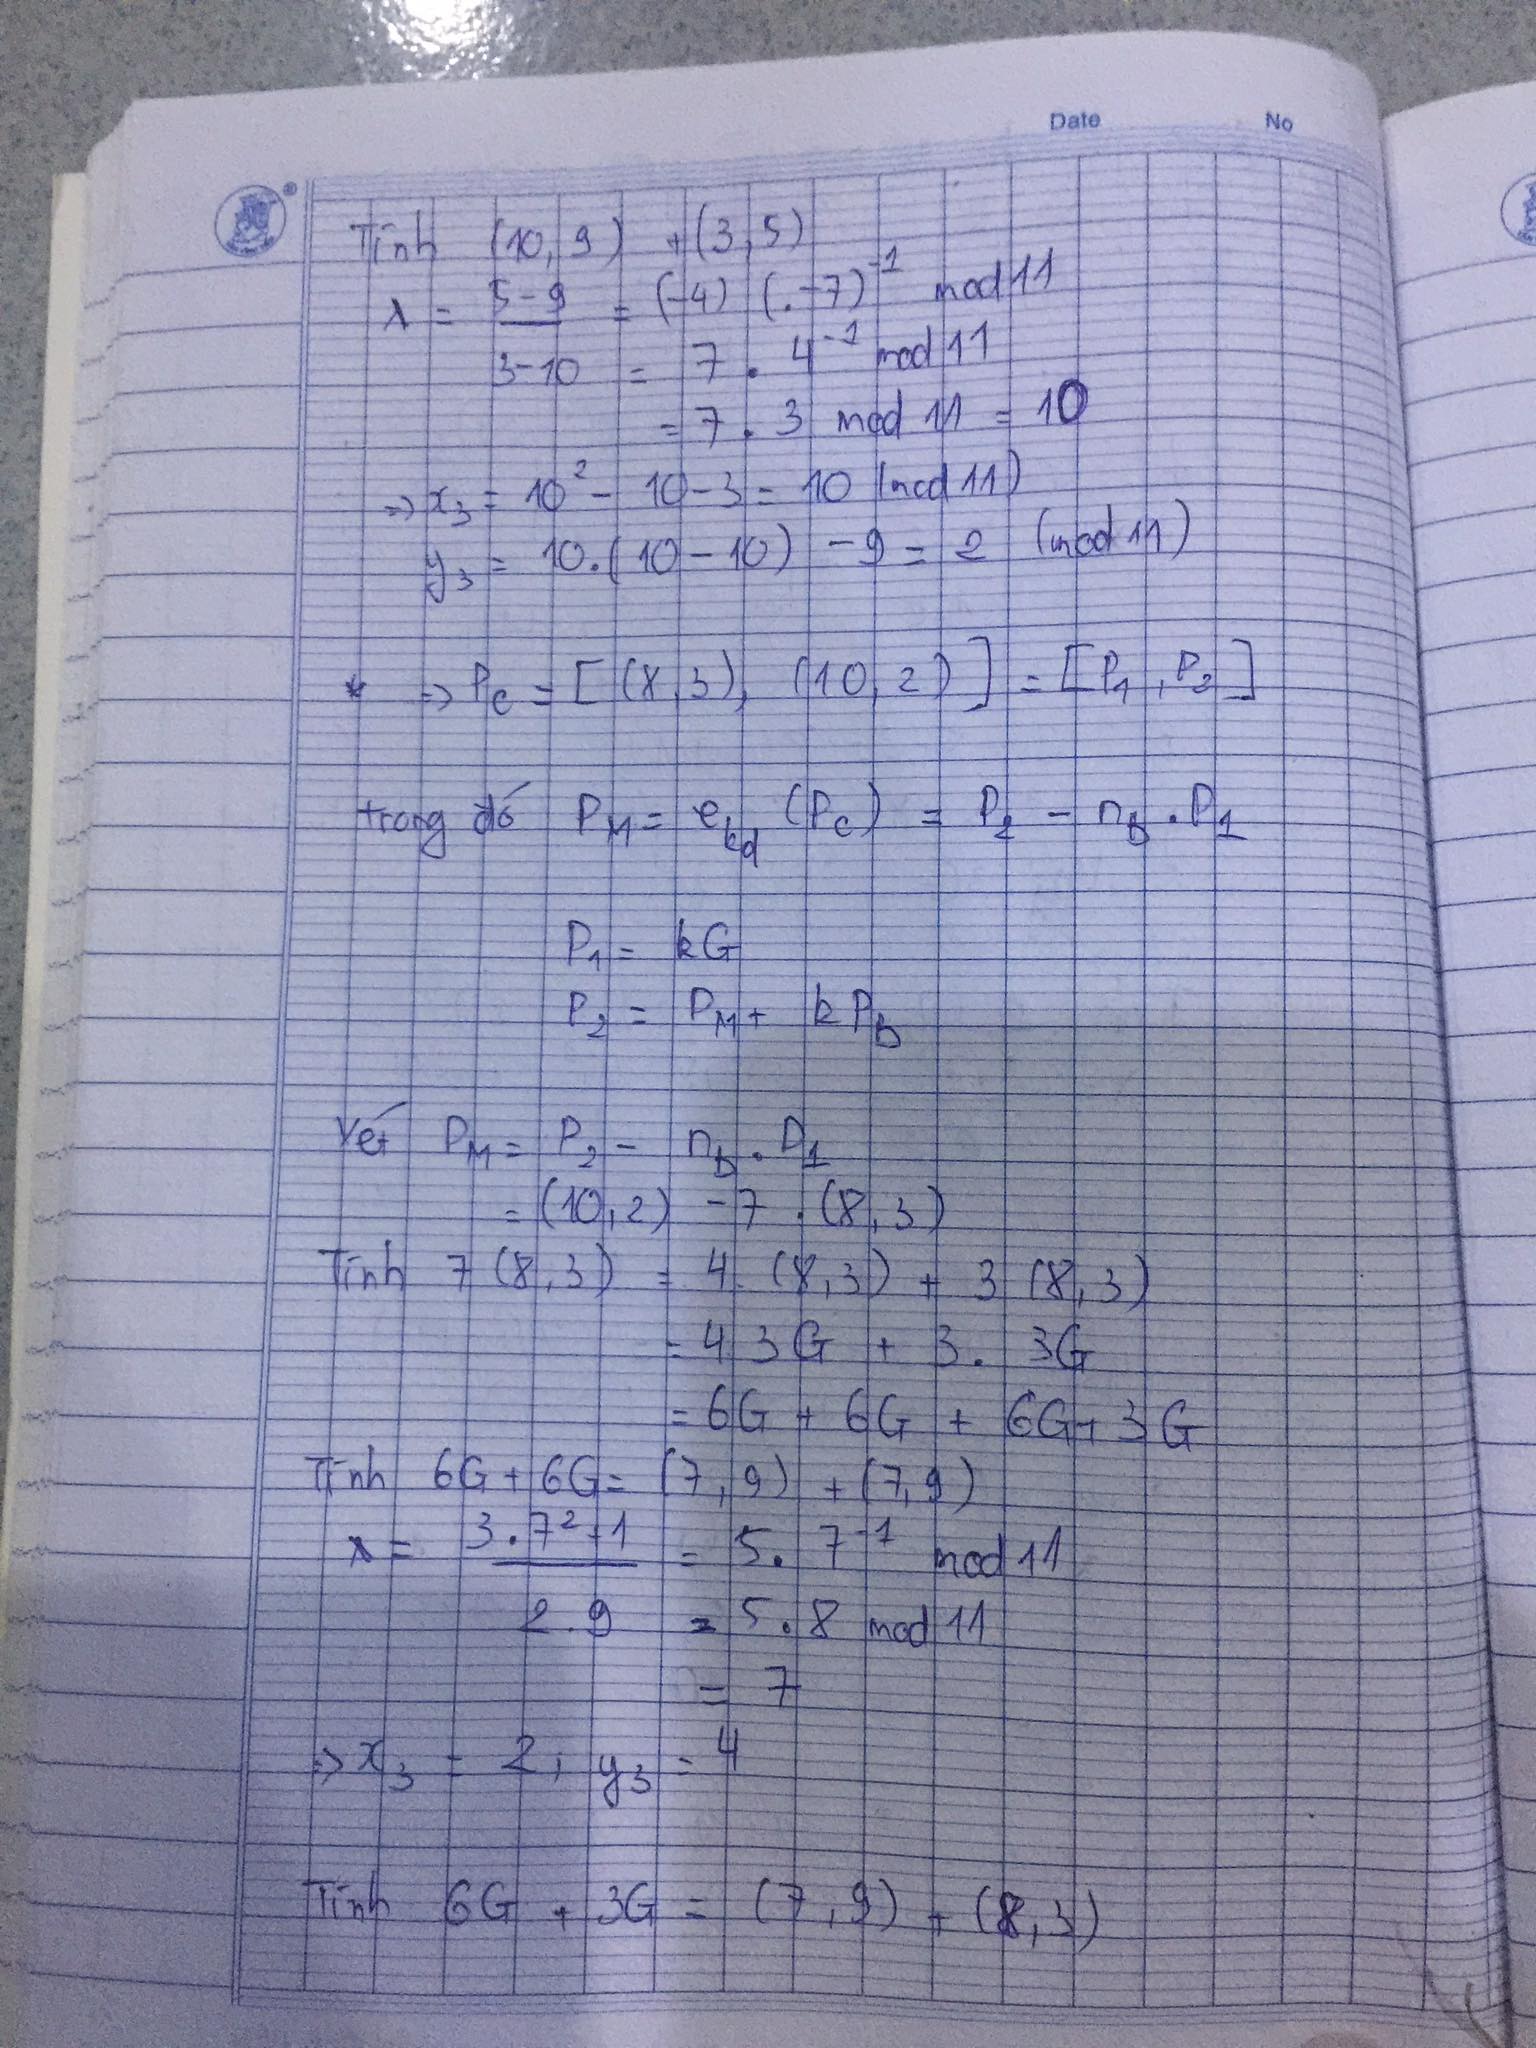 Date No
Tính (10, 9) + (3, 5)
λ = 5-9 / 3-10 = (-4) (-7)^-1 mod 11
= 7 . 4^-1 mod 11
= 7 . 3 mod 11 = 10
=> x3 = 10² - 10 - 3 = 10 (mod 11)
y3 = 10.(10 - 10) - 9 = 2 (mod 11)
* => Pc = [(8,3), (10,2)] = [P1, P2]
trong đó PM = e_kd (Pc) = P2 - nB . P1
P1 = kG
P2 = PM + kPB
Vét PM = P2 - nB . P1
= (10, 2) - 7 . (8, 3)
Tính 7 (8, 3) = 4. (8, 3) + 3 (8, 3)
= 4 3G + 3. 3G
= 6G + 6G + 6G + 3G
Tính 6G + 6G = (7, 9) + (7, 9)
λ = 3.7²+1 / 2.9 = 5. 7^-1 mod 11
= 5. 8 mod 11
= 7
=> x3 = 2; y3 = 4
Tính 6G + 3G = (7, 9) + (8, 3)